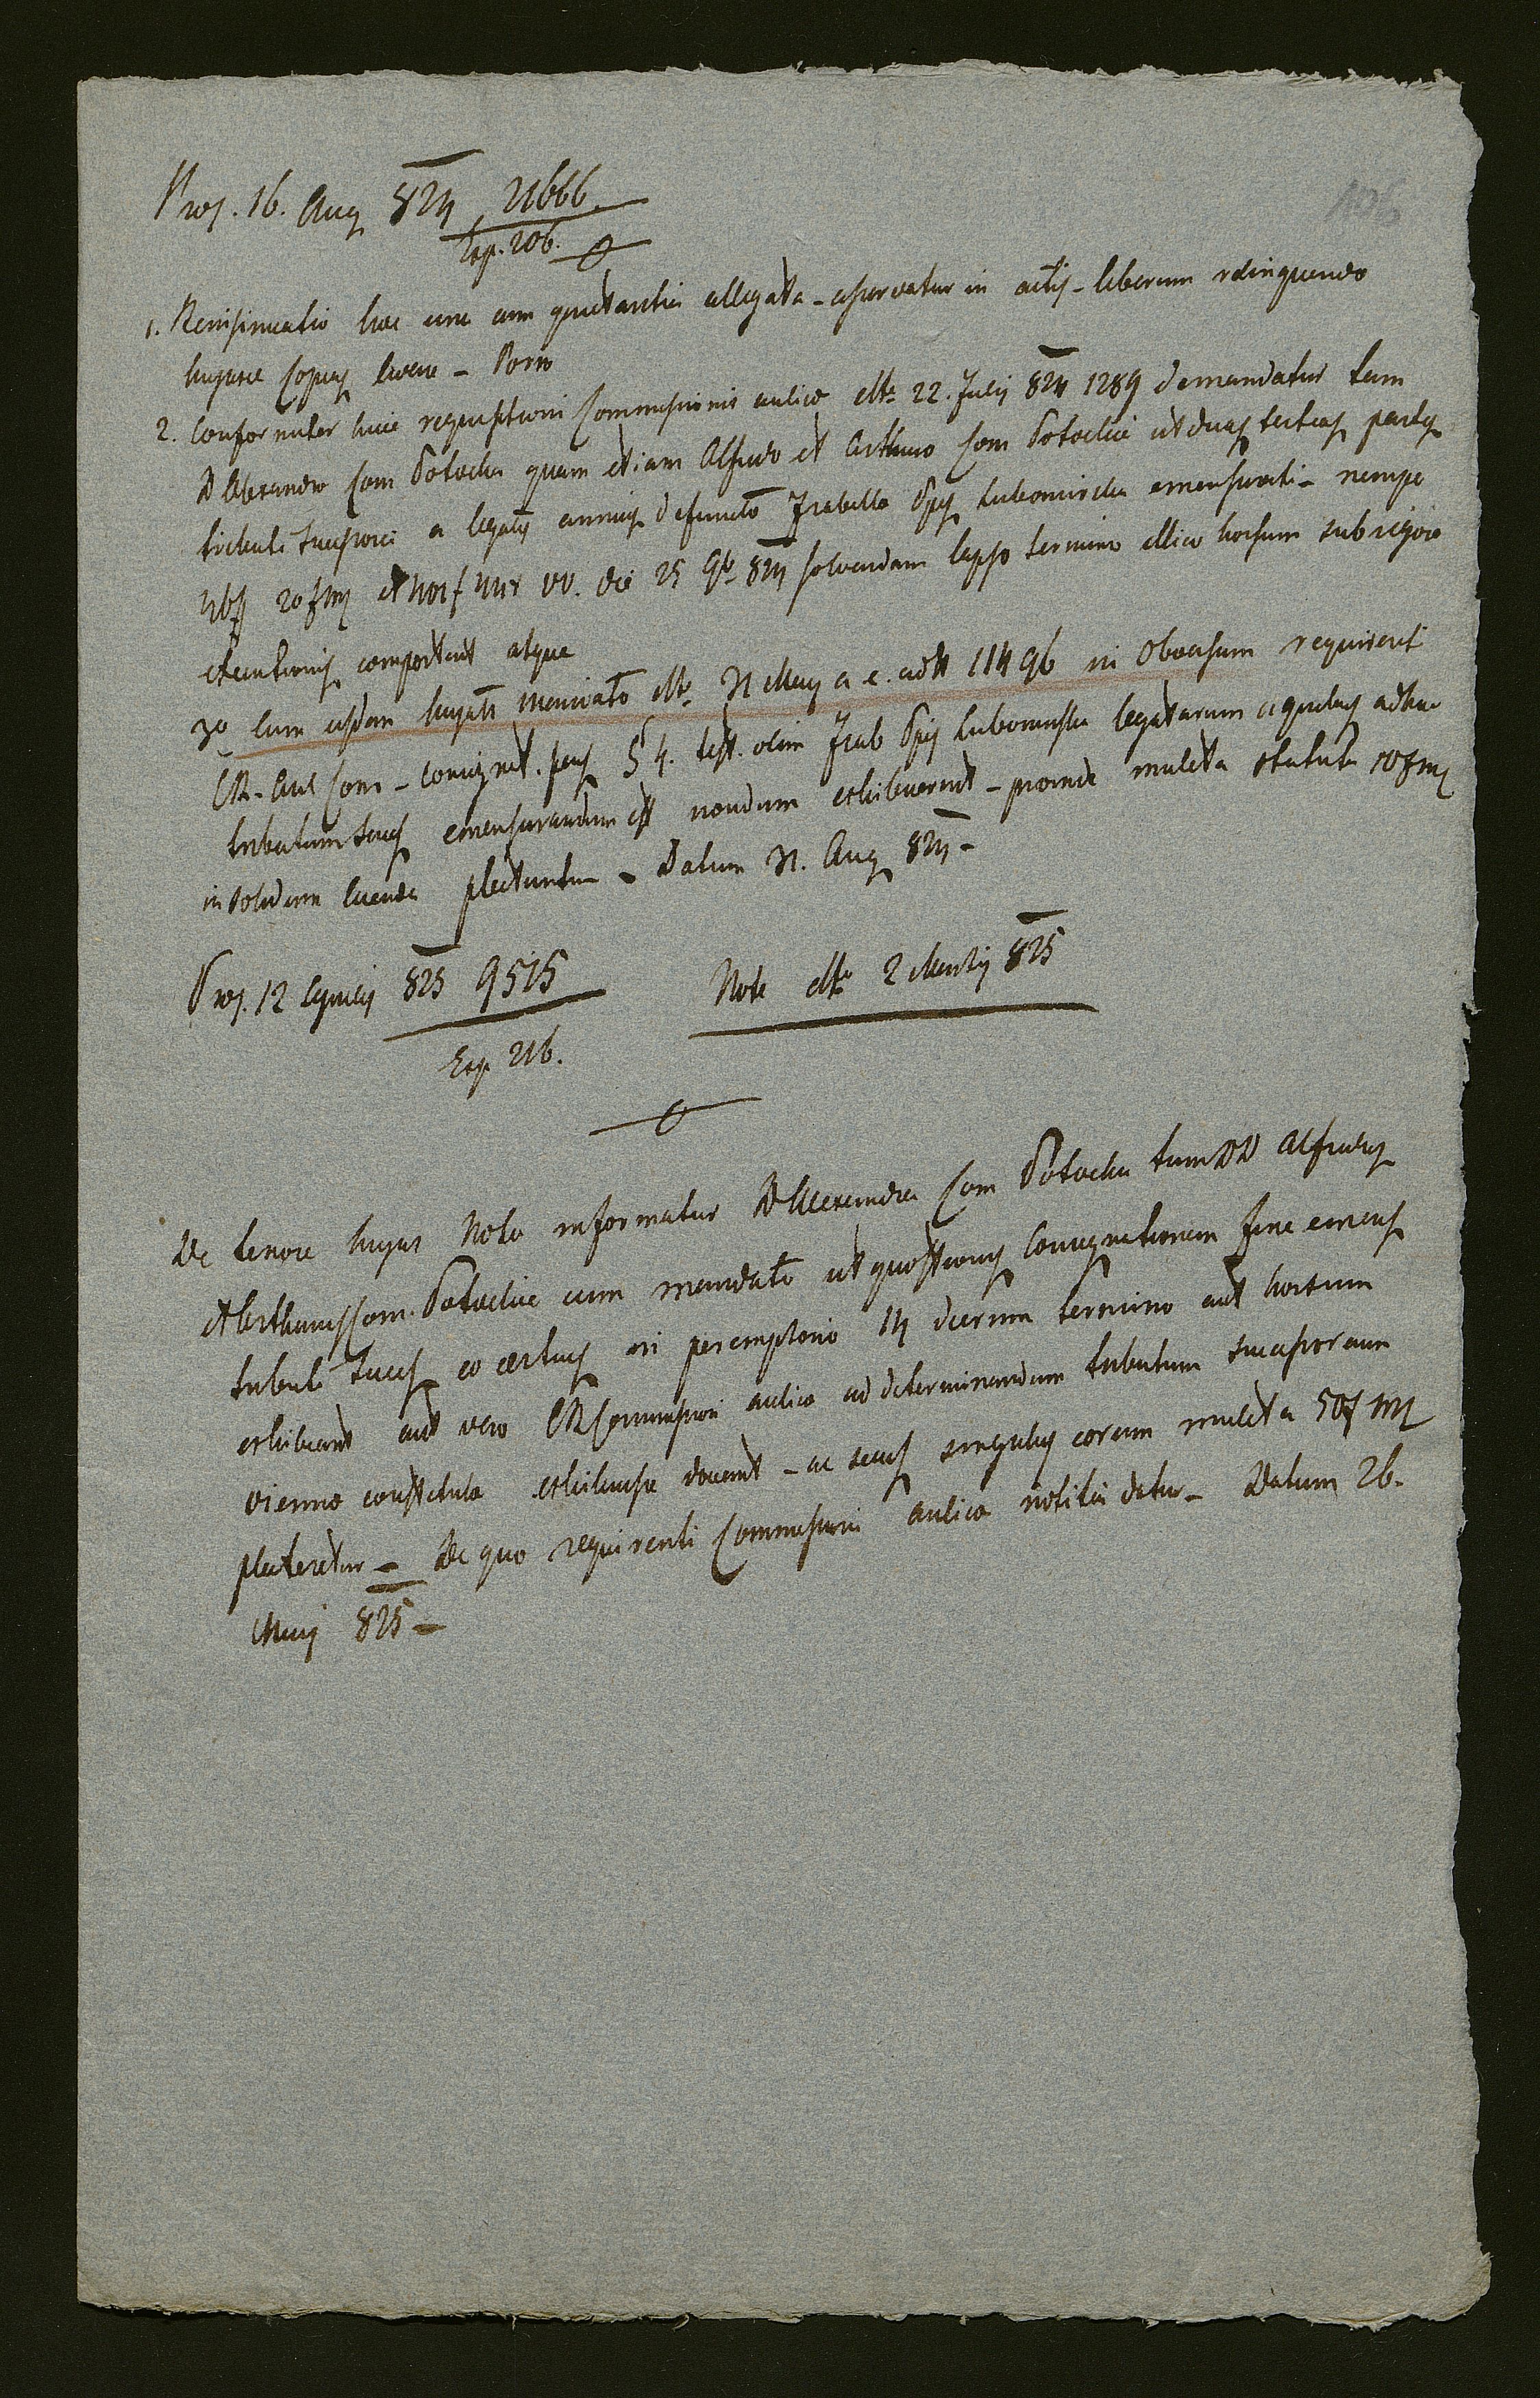 Proj. 16. Aug 824 21666.
Exp. 206.
1. Reinsinuatio haec una cum quietantia allegata - asservatur in actis - liberum relinquendo
hujusce copias levare - Porro
2. Conformiter huic requisitioni Commissionis aulicae dto 22. July 824 1289 demandatur tam
D Alexandro Com Potocki quam etiam Alfredo et Arthuro Com Potockie ut duas tertias partes
tributi successorii a legatis annuis defunctae Isabellae Dpis Lubomirska emensurati - nempe
20 f et f xr VV. die 25 9br 824 solvendam lapso termino illico horsum sub rigore
executionis comportent atque
3o Cum iisdem hujatis mandatis dto 31 May a c. ad N 11496 in obversum requirenti
CR. Aul Com - consignat. pens § 4. test. olim Isab Dpis Lubomirska legatarum a quibus adhuc
tributum succes emensurandum est nondum exhibuerint - proinde mulcta statuta 10 f
in solidum luenda plectuntur - Datum 31. Aug 824 -
Proj. 12 Aprilis 825 9515 Nota dto 2 Martij 825
Exp 216.
De tenore hujus Nota informatur D Alexandra Com Potocka tum DD Alfredus
et Arthurus Com. Potockie cum mandato ut quaestionis Consignationem fine emens
tributi succes eo certius in peremptorio 14 dierum termino aut horsum
exhibeant aut vero CR Commissioni aulica ad determinandum tributum successorium
Vienna constituta exhibuisse doceant - ac secus singulus eorum mulcta 50 f
plecteretur - De quo requirenti Commissioni aulica notitia datur - Datum 26.
May 825 -